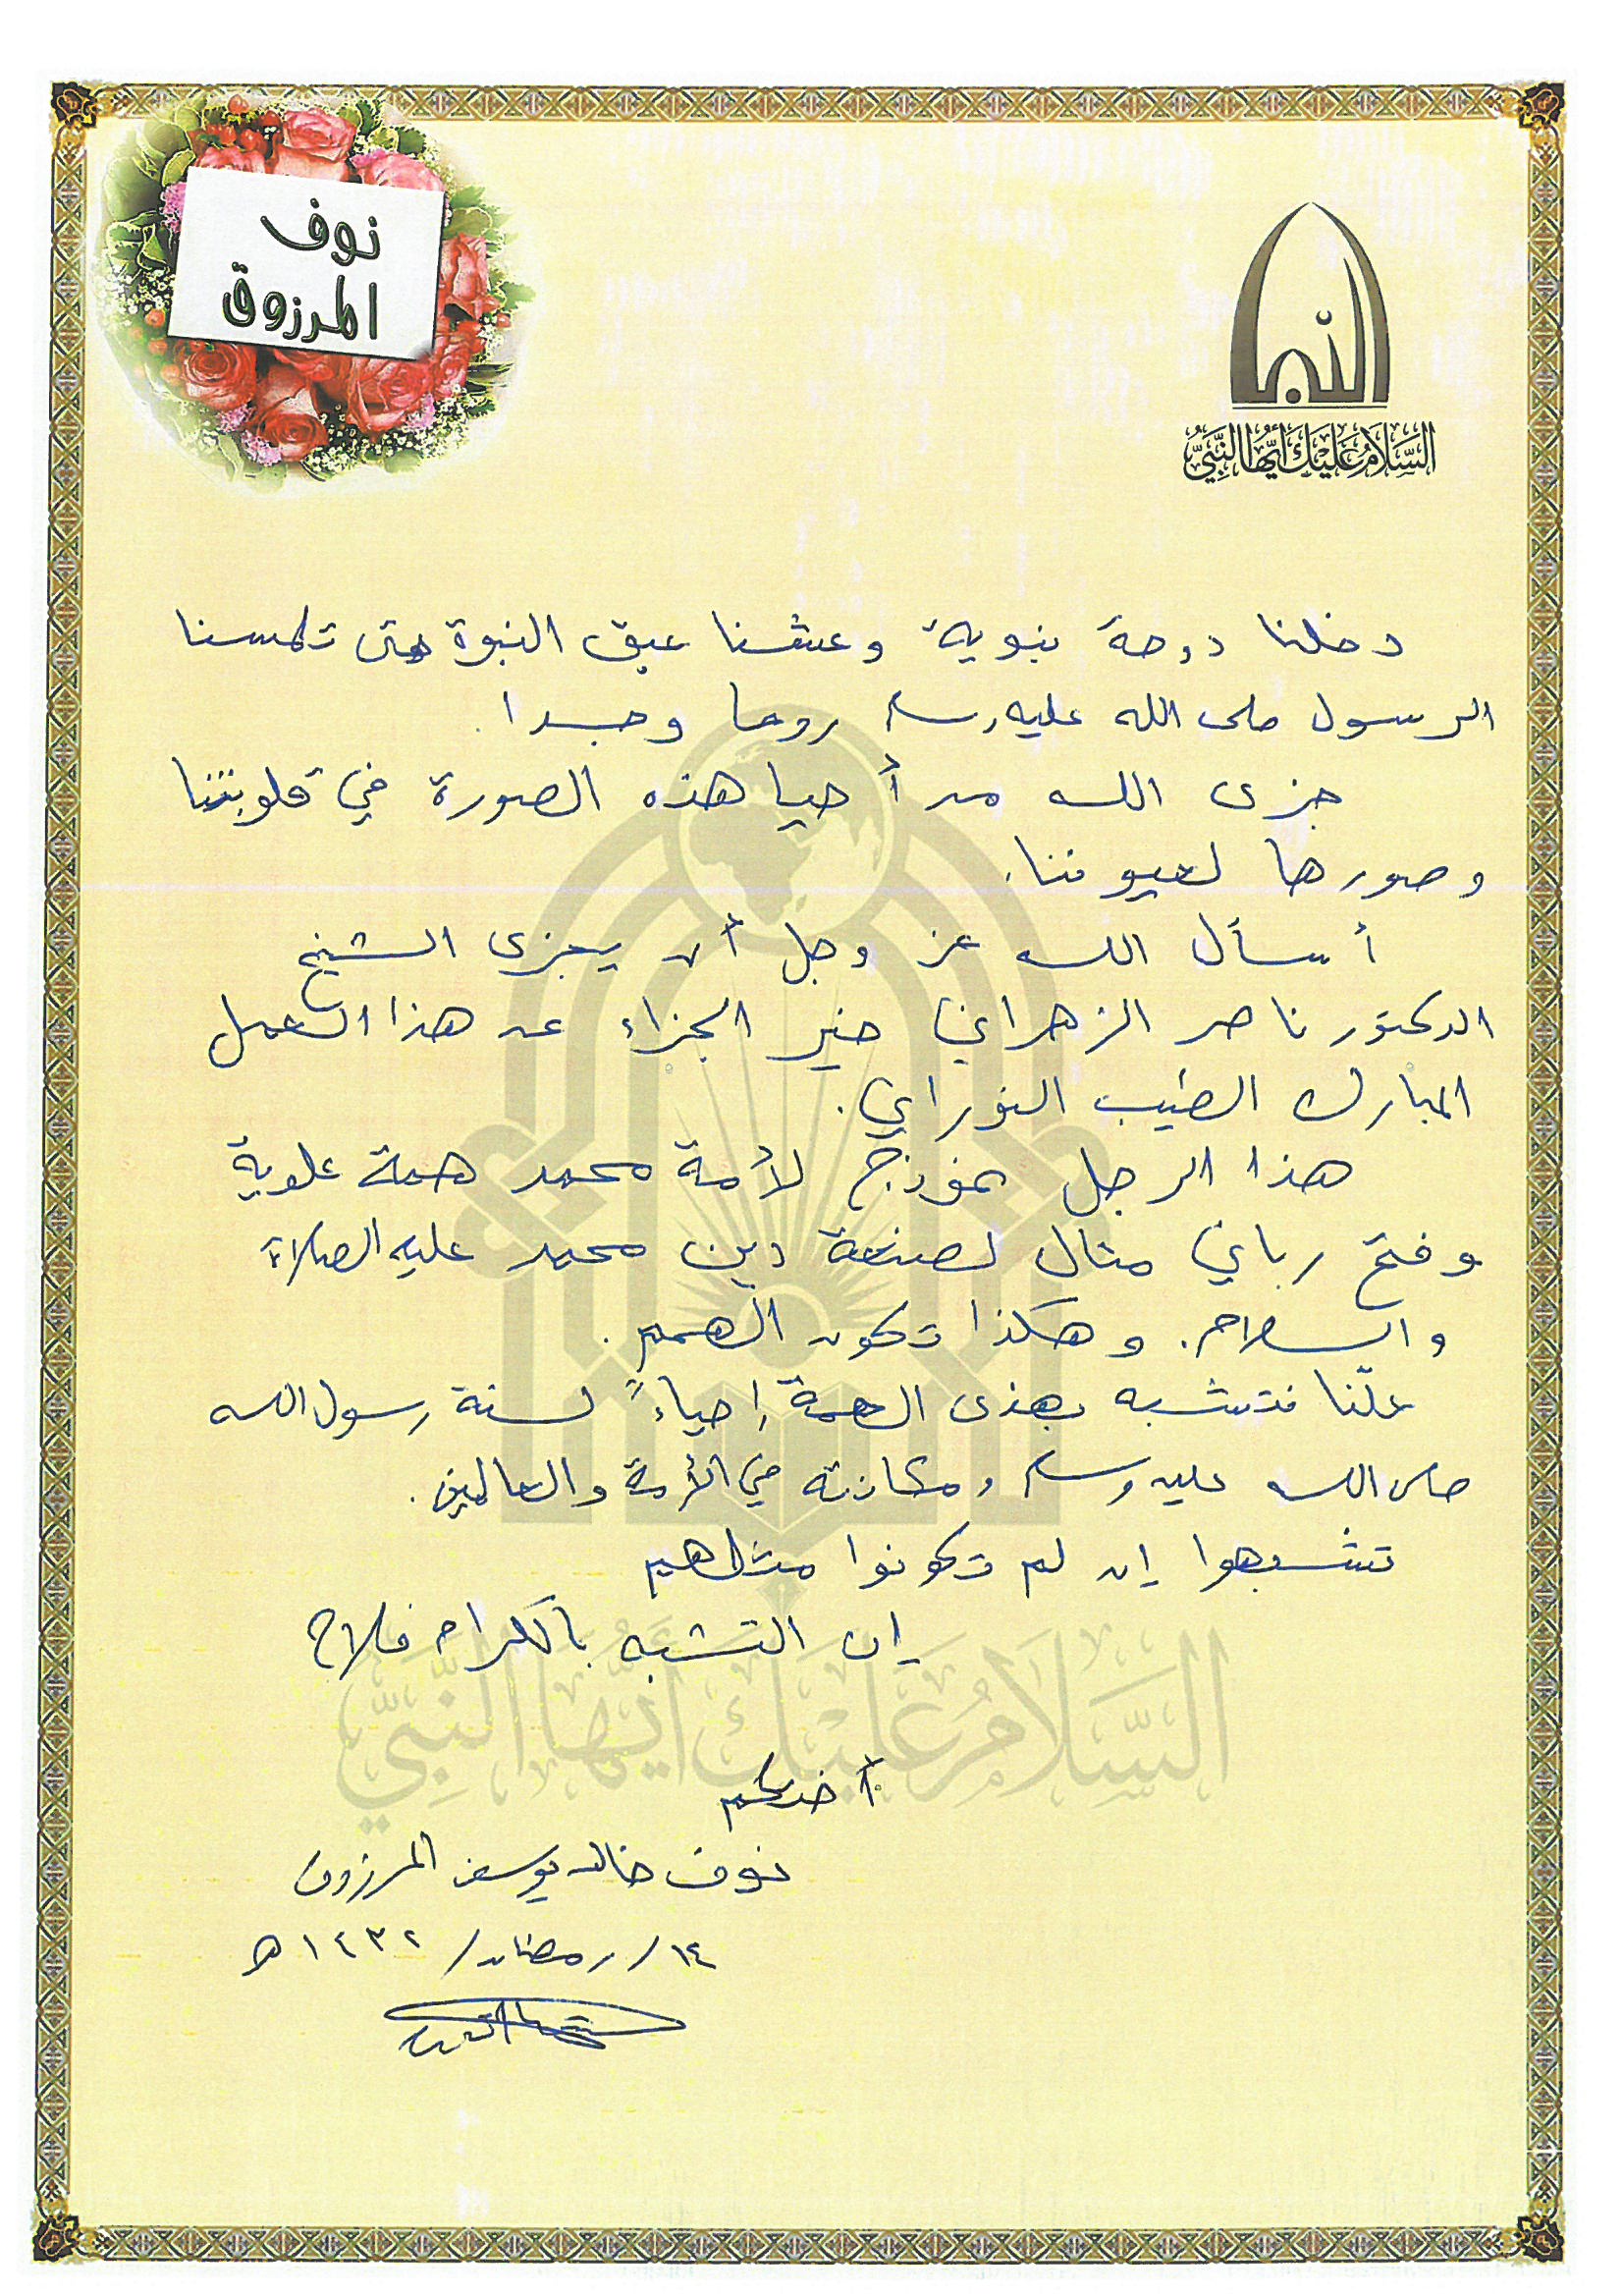 نوف
المرزوق
السلام عليك أيها النبي
دخلنا دوحة نبوية وعشنا عبق النبوة حتى تلمسنا
الرسول صلى الله عليه وسلم روحا وجسدا.
جزى الله من أحيا هذه الصورة في قلوبنا
وصورها لعيوننا.
أسأل الله عز وجل أن يجزى الشيخ
الدكتور ناصر الزهراني خير الجزاء عن هذا العمل
المبارك الطيب النوراني.
هذا الرجل نموذج لأمة محمد همة علوية
وفتح رباني مثال لصنعة دين محمد عليه الصلاة
والسلام. وهكذا تكون الهمم.
علّنا نتشبه بهذى الهمة إحياءً لسنة رسول الله
صلى الله عليه وسلم ومكانته في الأمة والعالمين.
تشبهوا إن لم تكونوا مثلهم
إن التشبه بالكرام فلاح
السلام عليك أيها النبي
أختكم
نوف خالد يوسف المرزوق
١٤/رمضان/١٤٣٢ه